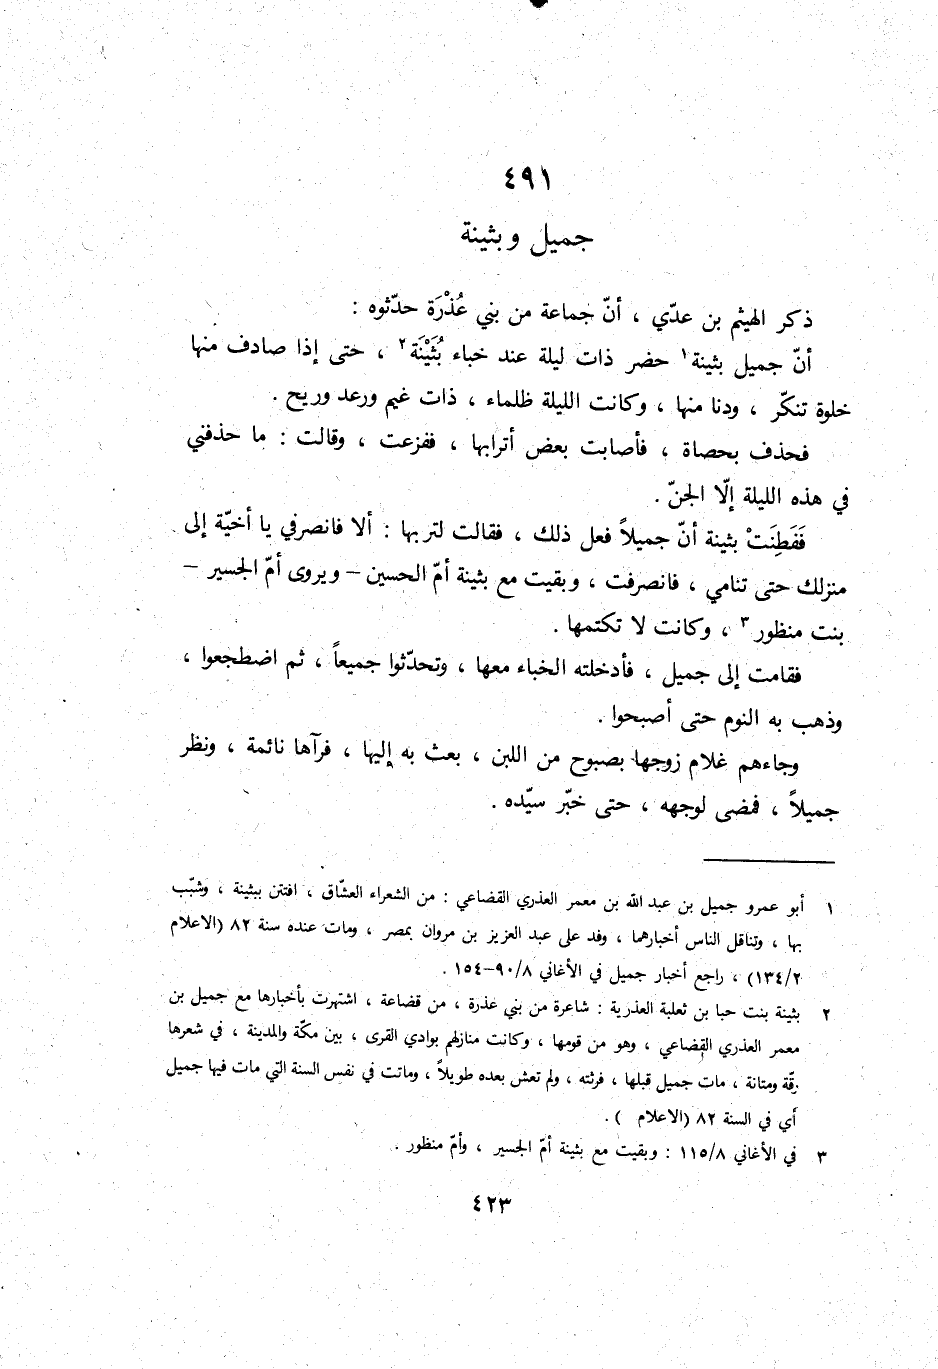 ٤٩١
جميل وبثينة
ذكر الهيثم بن عدّي ، أنّ جماعة من بني عُذْرَة حدّثوه :
أنّ جميل بثينة١ حضر ذات ليلة عند خباء بُثَيْنَة٢ ، حتى إذا صادف منها
خلوة تنكّر ، ودنا منها ، وكانت الليلة ظلماء ، ذات غيم ورعد وريح .
فحذف بحصاة ، فأصابت بعض أترابها ، ففزعت ، وقالت : ما حذفني
في هذه الليلة إلّا الجنّ .
فَفَطِنَتْ بثينة أنّ جميلاً فعل ذلك ، فقالت لتربها : ألا فانصرفي يا أخيّة إلى
منزلك حتى تنامي ، فانصرفت ، وبقيت مع بثينة أمّ الحسين – ويروى أمّ الجسير –
بنت منظور٣ ، وكانت لا تكتمها .
فقامت إلى جميل ، فأدخلته الخباء معها ، وتحدّثوا جميعاً ، ثم اضطجعوا ،
وذهب به النوم حتى أصبحوا .
وجاءهم غلام زوجها بصبوح من اللبن ، بعث به إليها ، فرآها نائمة ، ونظر
جميلاً ، فمضى لوجهه ، حتى خبّر سيّده .
١ أبو عمرو جميل بن عبد الله بن معمر العذري القضاعي : من الشعراء العشّاق ، افتتن ببثينة ، وشبّب
بها ، وتناقل الناس أخبارهما ، وفد على عبد العزيز بن مروان بمصر ، ومات عنده سنة ٨٢ (الاعلام
١٣٤/٢) ، راجع أخبار جميل في الأغاني ٩٠/٨–١٥٤ .
٢ بثينة بنت حبا بن ثعلبة العذرية : شاعرة من بني عذرة ، من قضاعة ، اشتهرت بأخبارها مع جميل بن
معمر العذري القضاعي ، وهو من قومها ، وكانت منازلهم بوادي القرى ، بين مكّة والمدينة ، في شعرها
رقّة ومتانة ، مات جميل قبلها ، فرثته ، ولم تعش بعده طويلاً ، وماتت في نفس السنة التي مات فيها جميل
أي في السنة ٨٢ (الاعلام ) .
٣ في الأغاني ١١٥/٨ : وبقيت مع بثينة أمّ الجسير ، وأمّ منظور .
٤٢٣